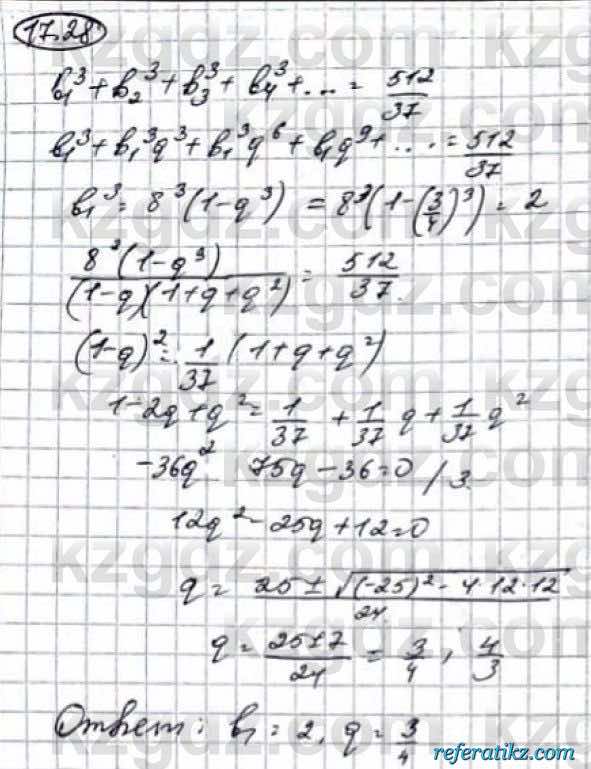 17.28
b₁³ + b₂³ + b₃³ + b₄³ + ... = 512/37
b₁³ + b₁³q³ + b₁³q⁶ + b₁q⁹ + ... = 512/37
b₁³ = 8³(1-q³) = 8³(1-(3/4)³) = 2
8²(1-q³)/((1-q)(1+q+q²)) = 512/37
(1-q)² = 1/37 (1+q+q²)
1-2q+q² = 1/37 + 1/37 q + 1/37 q²
-36q² 75q - 36 = 0 / 3
12q² - 25q + 12 = 0
q = 25 ± √((-25)² - 4·12·12) / 24
q = 25±7/24 = 3/4 ; 4/3
Ответ: b₁ = 2, q = 3/4
referatikz.com
kzgdz.com